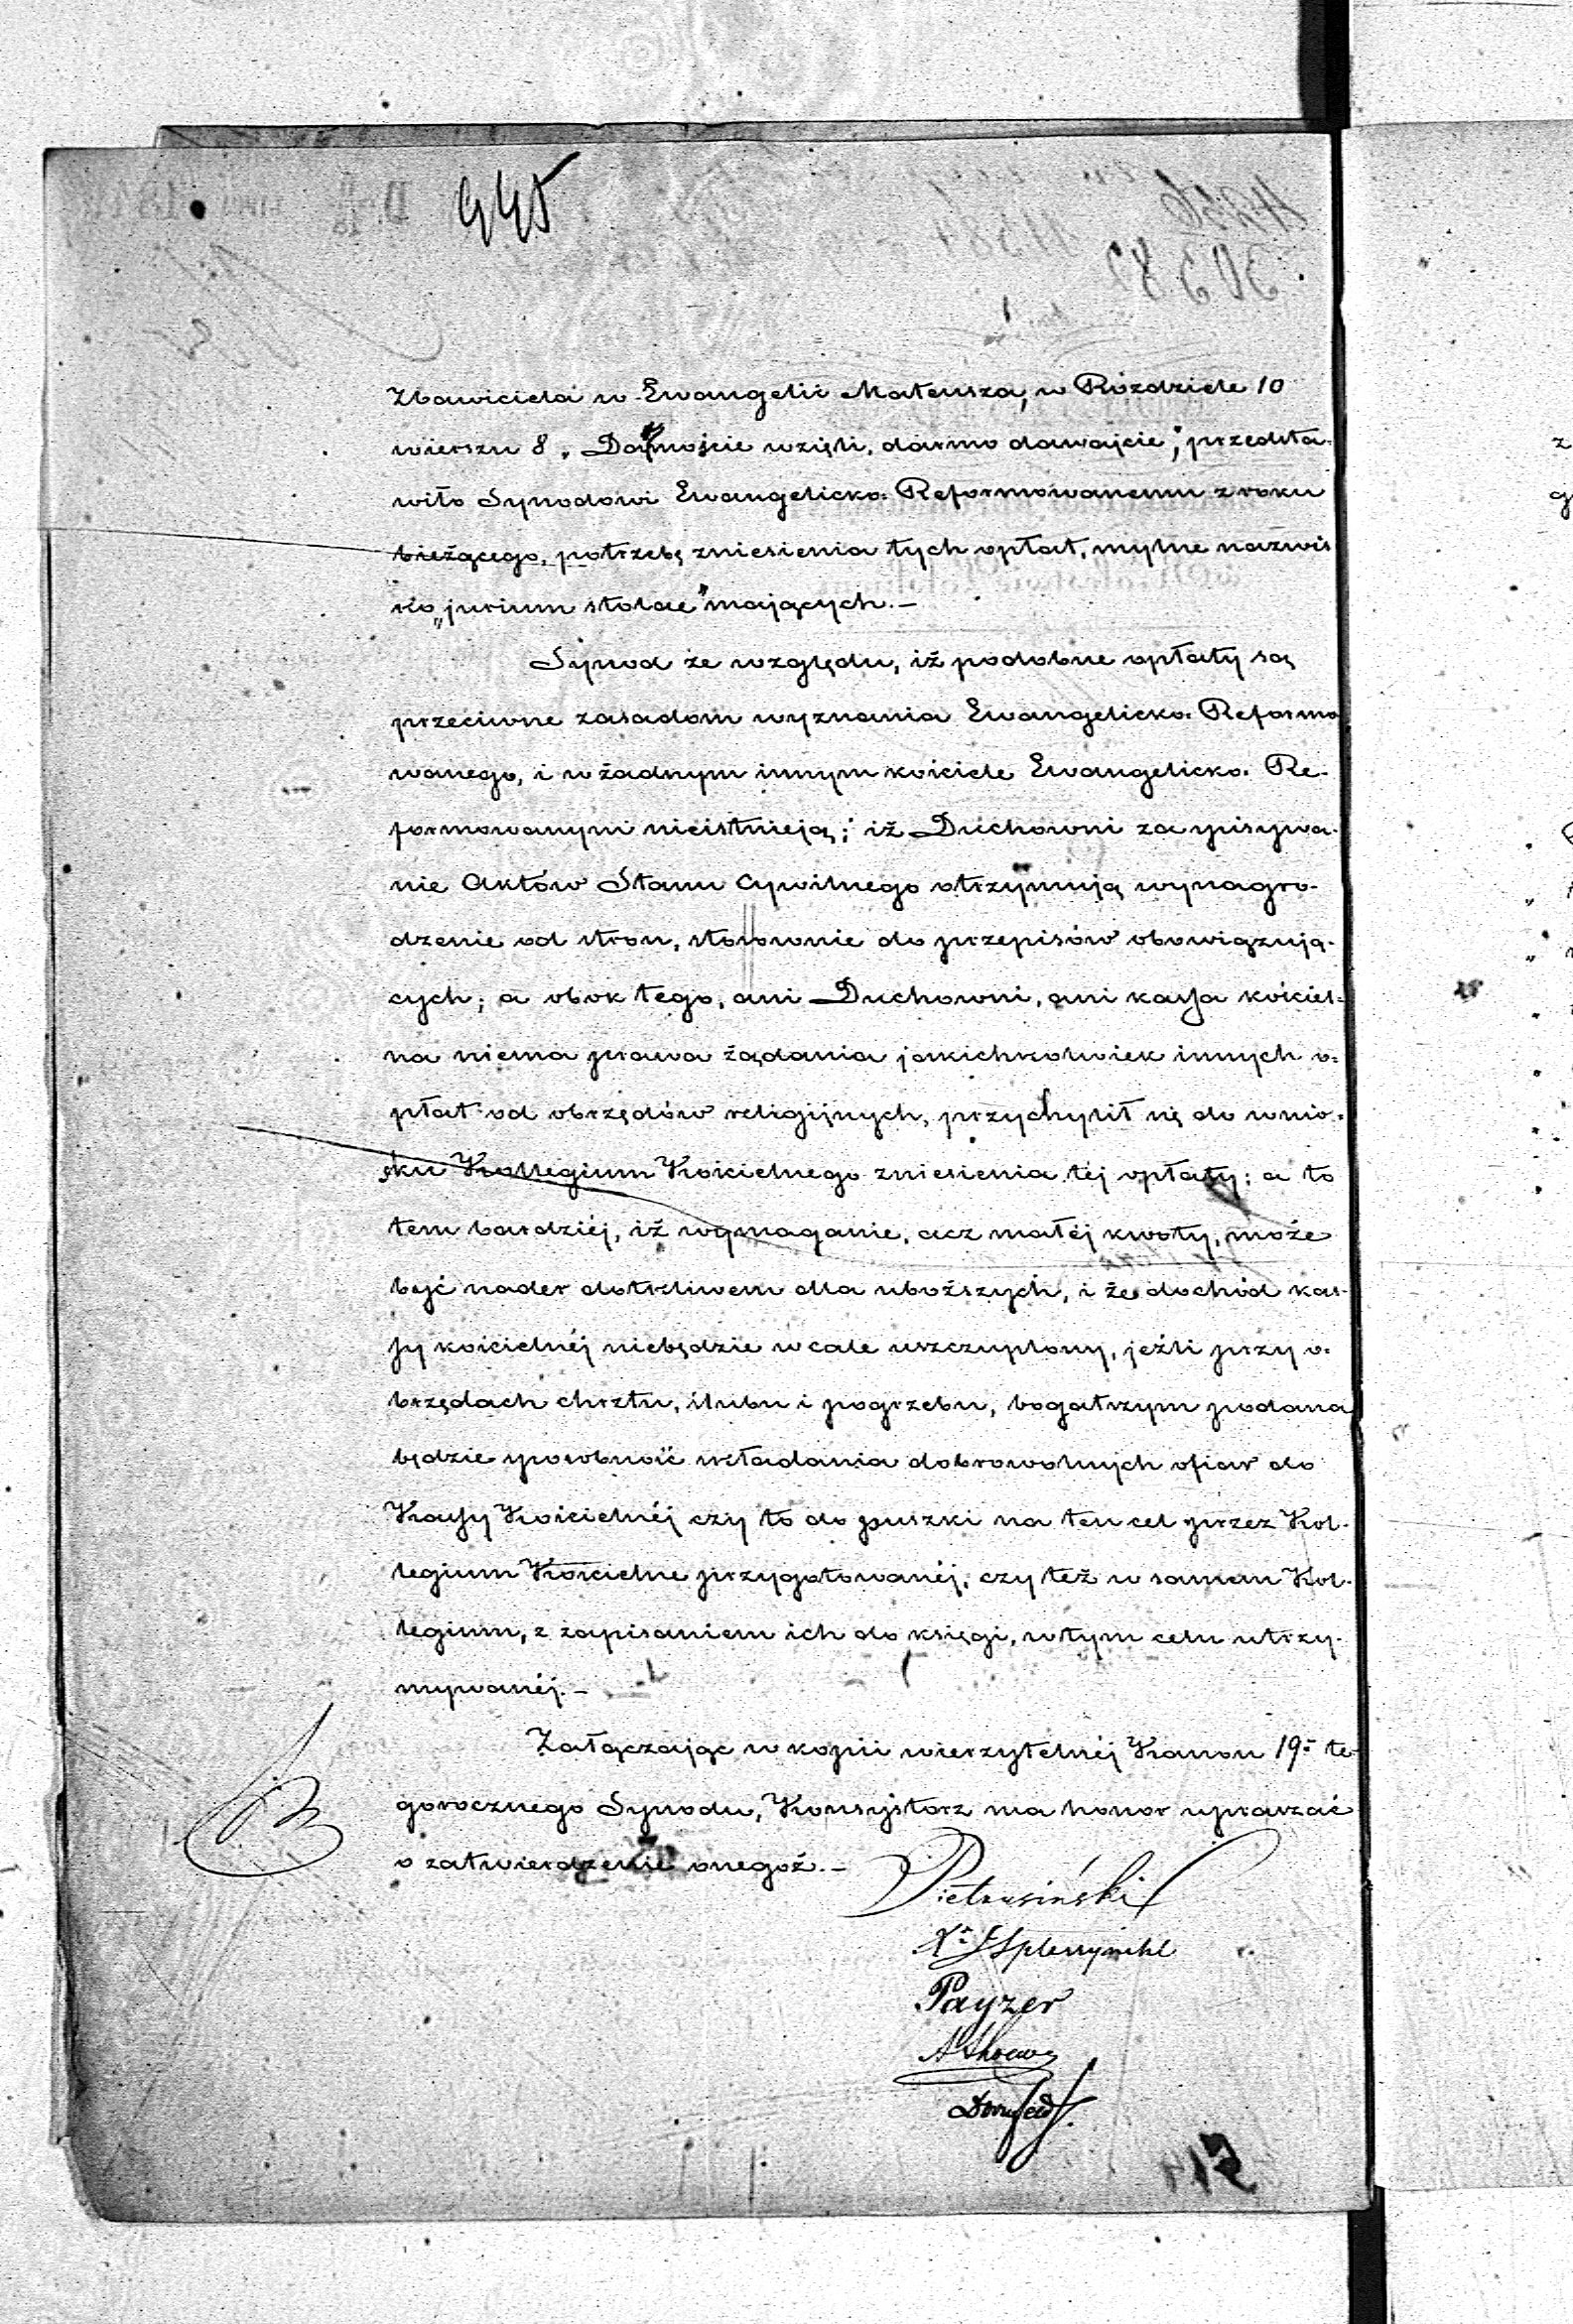 445
Zbawiciela w Ewangelii Mateusza, w Rózdziele 10
wierszu 8 „Darmoście wzięli, darmo dawajcie"; przedsta-
wiło Synodowi Ewangelicko-Reformowanemu z roku
bieżącego, potrzebę zniesienia tych opłat, mylne nazwis
ko „jurium stolae" mających.—
Synod ze względu, iż podobne opłaty są
przeciwne zasadom wyznania Ewangelicko-Reformo
wanego, i w żadnym innym kościele Ewangelicko-Re-
formowanym nieistnieją; iż Duchowni za spisywa-
nie Aktów Stanu Cywilnego otrzymują wynagro-
dzenie od stron, stosownie do przepisów obowiązują-
cych; a obok tego, ani Duchowni, ani kassa kościel-
na niema prawa żądania jakichkolwiek innych o-
płat od obrzędów religijnych, przychylił się do wnio-
sku Kollegium Kościelnego zniesienia téj opłaty; a to
tem bardziéj, iż wymaganie, acz małéj kwoty, może
być nader dotkliwem dla uboższych, i że dochód kas-
sy kościelnéj niebędzie wcale uszczuplony, jeźli przy o-
brzędach chrztu, ślubu i pogrzebu, bogatszym podana
będzie sposobność składania dobrowolnych ofiar do
Kassy Kościelnéj czy to do puszki na ten cel przez Kol-
legium Kościelne przygotowanéj, czy też w samem Kol-
legium, z zapisaniem ich do księgi, w tym celu utrzy-
mywanéj.—
Załączając w kopii wierzytelnéj Kanon 19- te-
gorocznego Synodu, Konsystorz ma honor upraszać
o zatwierdzenie onegoż.—
Pietrusiński
Payzer